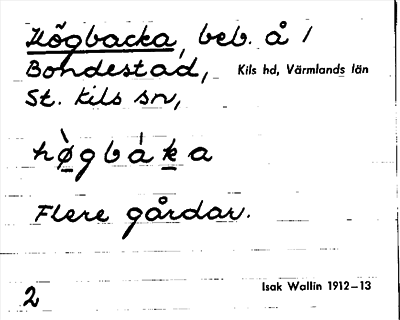 Högbacka, beb. å /
Bondestad, Kils hd, Värmlands län
St. Kils sn,
hø̀gbáka
Flere gårdar.
2 Isak Wallin 1912–13